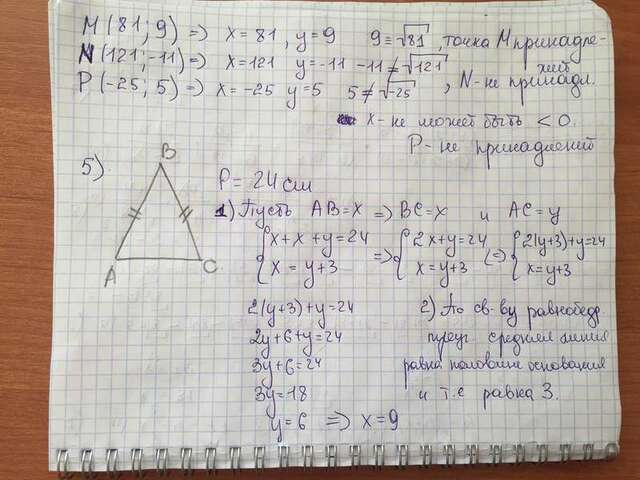 M (81; 9) => x = 81, y = 9 9 = √81, точка M принадле-
жит
N (121; -11) => x = 121 y = -11 -11 ≠ √121, N - не принадл.
P (-25; 5) => x = -25 y = 5 5 ≠ √-25
x - не может быть < 0.
P - не принадлежит
5).
B
A
C
P = 24 см
1) Пусть AB = x => BC = x и AC = y
{ x + x + y = 24 => { 2x + y = 24 <=> { 2(y+3) + y = 24
{ x = y + 3 { x = y + 3 { x = y + 3
2(y+3) + y = 24
2y + 6 + y = 24
3y + 6 = 24
3y = 18
y = 6 => x = 9
2) По св-ву равнобедр
треуг средняя линия
равна половине основания
и т.е равна 3